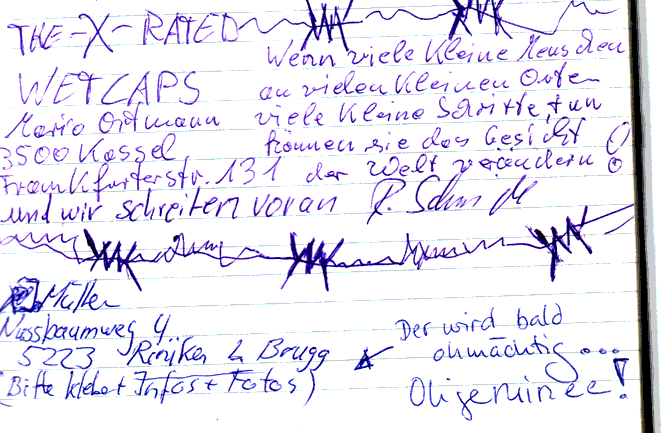 THE-X-RATED
WETCAPS
Mario Ortmann
3500 Kassel
Frankfurterstr. 131
Wenn viele kleine Menschen
an vielen kleinen Orten
viele kleine Schritte tun
können sie das Gesicht
der Welt verändern!
und wir schreiten voran
Müller
Nussbaumweg 4
5223 Riniken b. Brugg
(Bitte klebet Infos + Fotos)
Der wird bald
ohnmächtig...
Ohgeminee!